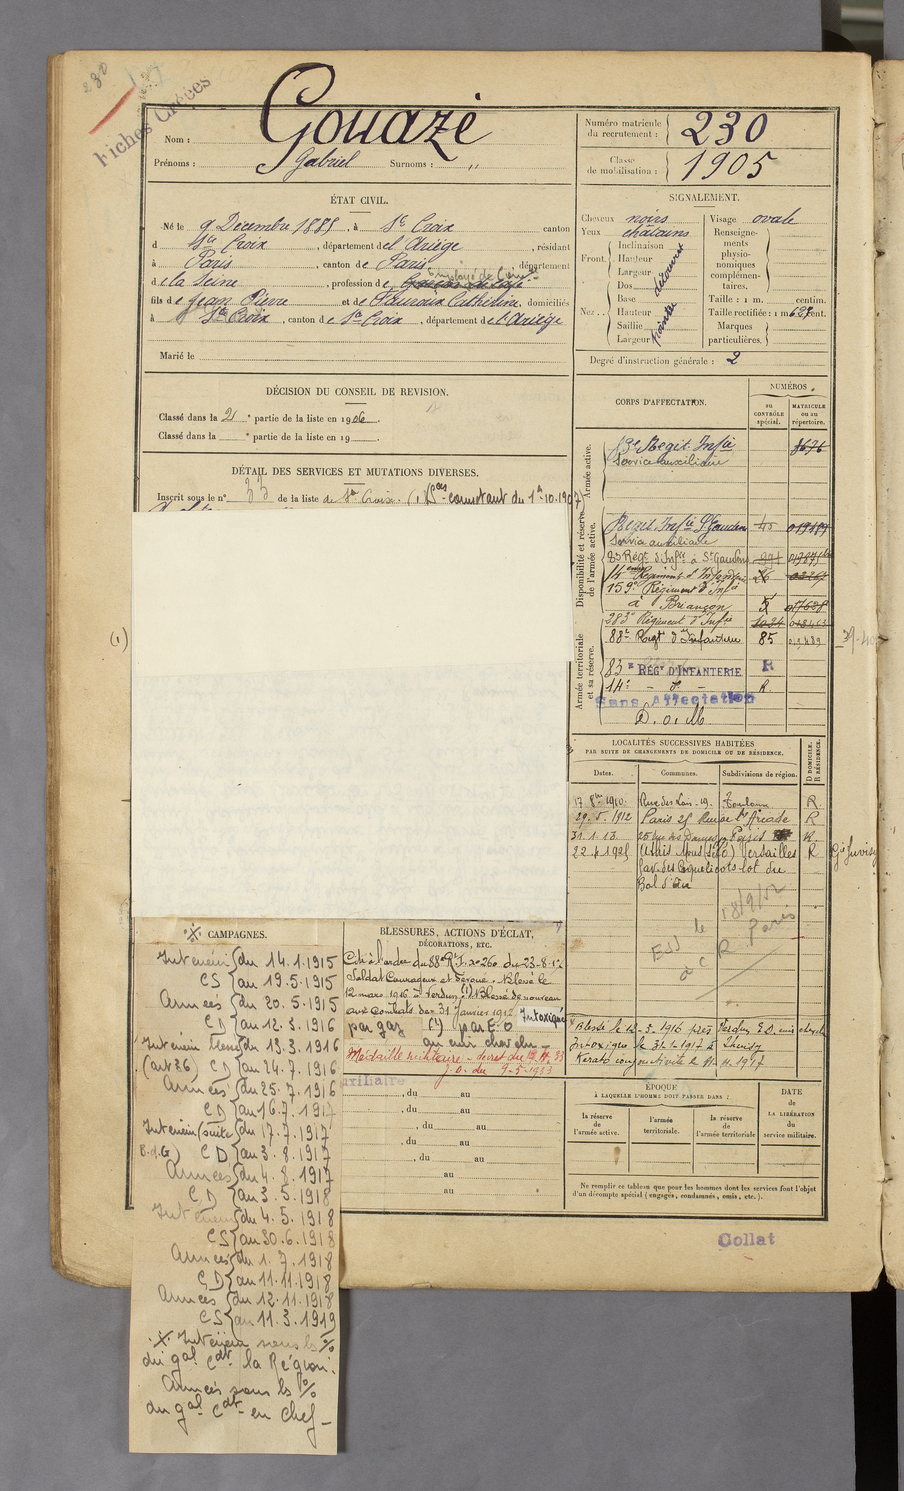 230
Fiches Créées
Nom : Gouazé
Prénoms : Gabriel Surnoms : "
Numéro matricule du recrutement : 230
Classe de mobilisation : 1905
ÉTAT CIVIL.
Né le 9 Décembre 1885, à Ste Croix canton
d Ste Croix, département de l'Ariège, résidant
à Paris, canton de Paris département
Employé de Comce
de la Seine, profession de
fils de Jean Pierre et de Fauroux Catherine, domiciliés
à Ste Croix, canton de Ste Croix, département de l'Ariège
Marié le
SIGNALEMENT.
Cheveux noirs
Yeux châtains
Front. Inclinaison
Hauteur
Largeur
découvert
Nez. . Dos
Base
Hauteur
Saillie
Largeur
Visage ovale
Renseignements physionomiques complémentaires.
Taille : 1 m. centim.
Taille rectifiée : 1 m 62 cent.
Marques particulières.
Degré d'instruction générale : 2
DÉCISION DU CONSEIL DE REVISION.
Classé dans la 2e partie de la liste en 1906.
Classé dans la e partie de la liste en 19
DÉTAIL DES SERVICES ET MUTATIONS DIVERSES.
Inscrit sous le n° 33 de la liste de Ste Croix. comptant du 1er-10-1907)
CORPS D'AFFECTATION.
NUMÉROS
au CONTRÔLE spécial.
MATRICULE ou au répertoire.
Armée active.
83e Regit. Infie 8676
Service auxiliaire
Disponibilité et réserve de l'armée active.
Regit Infie St Gaudens 45
Service auxiliaire
83 Régt d'Infie à St Gaudens
14eme Régiment d'Infanterie 26
159e Régiment d'Infie
à Briançon
Armée territoriale et sa réserve.
283e Régiment d'Infie
88e Regt d'Infanterie 85
83e RÉGt D'INFANTERIE R
14e - d° - R.
Sans Affectation
D. o. M
(1)
LOCALITÉS SUCCESSIVES HABITÉES
PAR SUITE DE CHANGEMENTS DE DOMICILE OU DE RÉSIDENCE.
Dates. Communes. Subdivisions de région. D DOMICILE. R RÉSIDENCE.
17. 8bre 1910. Rue des Lois - 19. Toulouse R.
29. 5. 1912 Paris 25 Rue de l'Arcade R
31. 1. 13. 25 rue des Dames Paris R
22 4 1925 Athis-Mons (S&O) Versailles R Gie Juvisy
Lav. des Coquelicots lot du
Bal d'Eté
18/9/52
ESS le
à C R Paris
CAMPAGNES.
Intérieur du 14.1.1915
CS au 19.5.1915
Armées du 20.5.1915
CD au 12.3.1916
Intérieur blessé du 13.3.1916
(art 26) CD au 24.7.1916
Armées du 25.7.1916
CD au 16.7.1917
Intérieur (suite du 17.7.1917
B.d.G) CD au 3.8.1917
Armées du 4.8.1917
CD au 3.5.1918
Intérieur du 4.5.1918
CS au 30.6.1918
Armées du 1.7.1918
CD au 11.11.1918
Armées du 12.11.1918
CS au 11.3.1919
Intérieur sous les %
du gal cdt la Région.
Armées sous les %
du gal cdt en chef_
BLESSURES, ACTIONS D'ÉCLAT,
DÉCORATIONS, ETC.
Cité à l'ordre du 88e R.I. n° 260 du 23-8-17
Soldat Courageux et dévoué. Blessé le
12 mars 1916 à Verdun. (1) Blessé de nouveau
aux Combats de 31 Janvier 1917. Intoxiqué
par gaz (1) par E.O
au cuir chevelu_
Médaille militaire - décret du
J.O. du 9-5-1933
Blessé le 12-3-1916 près Verdun E.O. cuir chevelu
Intoxiqué le 31-1-1917 à Thuisy
Kérato conjonctivite le 11-4-1917
uxiliaire
, du au
, du au
, du au
, du au
, du au
au
au
ÉPOQUE
À LAQUELLE L'HOMME DOIT PASSER DANS :
la réserve de l'armée active.
l'armée territoriale.
la réserve de l'armée territoriale
DATE de LA LIBÉRATION du service militaire.
Ne remplir ce tableau que pour les hommes dont les services font l'objet
d'un décompte spécial (engagés, condamnés, omis, etc.).
Collat